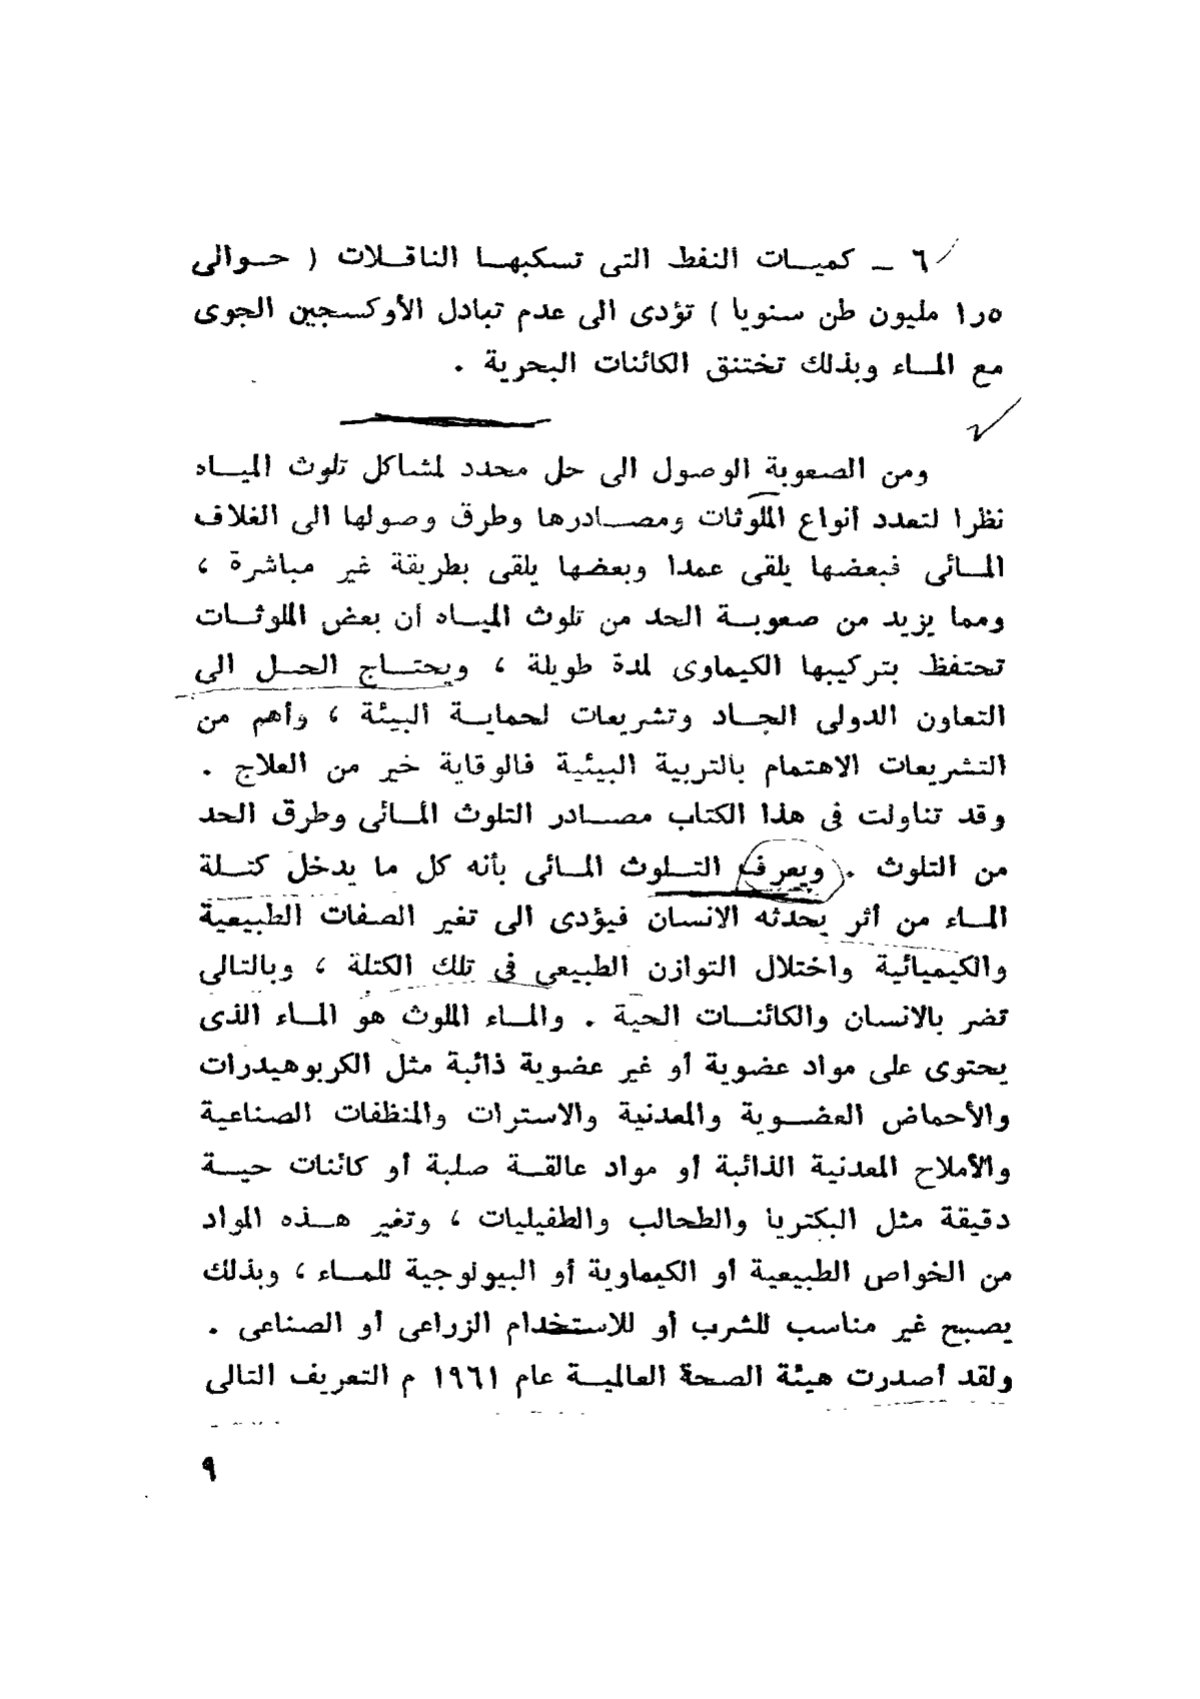 ٦ ـ كميات النفط التى تسكبها الناقلات ( حوالى
١٫٥ مليون طن سنويا ) تؤدى الى عدم تبادل الأوكسجين الجوى
مع الماء وبذلك تختنق الكائنات البحرية .
ومن الصعوبة الوصول الى حل محدد لمشاكل تلوث المياه
نظرا لتعدد أنواع الملوثات ومصادرها وطرق وصولها الى الغلاف
المائى فبعضها يلقى عمدا وبعضها يلقى بطريقة غير مباشرة ،
ومما يزيد من صعوبة الحد من تلوث المياه أن بعض الملوثات
تحتفظ بتركيبها الكيماوى لمدة طويلة ، ويحتاج الحل الى
التعاون الدولى الجاد وتشريعات لحماية البيئة ، وأهم من
التشريعات الاهتمام بالتربية البيئية فالوقاية خير من العلاج .
وقد تناولت فى هذا الكتاب مصادر التلوث المائى وطرق الحد
من التلوث . ويعرف التلوث المائى بأنه كل ما يدخل كتلة
الماء من أثر يحدثه الانسان فيؤدى الى تغير الصفات الطبيعية
والكيميائية واختلال التوازن الطبيعى فى تلك الكتلة ، وبالتالى
تضر بالانسان والكائنات الحية . والماء الملوث هو الماء الذى
يحتوى على مواد عضوية أو غير عضوية ذائبة مثل الكربوهيدرات
والأحماض العضوية والمعدنية والاسترات والمنظفات الصناعية
والأملاح المعدنية الذائبة أو مواد عالقة صلبة أو كائنات حية
دقيقة مثل البكتريا والطحالب والطفيليات ، وتغير هذه المواد
من الخواص الطبيعية أو الكيماوية أو البيولوجية للماء ، وبذلك
يصبح غير مناسب للشرب أو للاستخدام الزراعى أو الصناعى .
ولقد أصدرت هيئة الصحة العالمية عام ١٩٦١ م التعريف التالى
٩